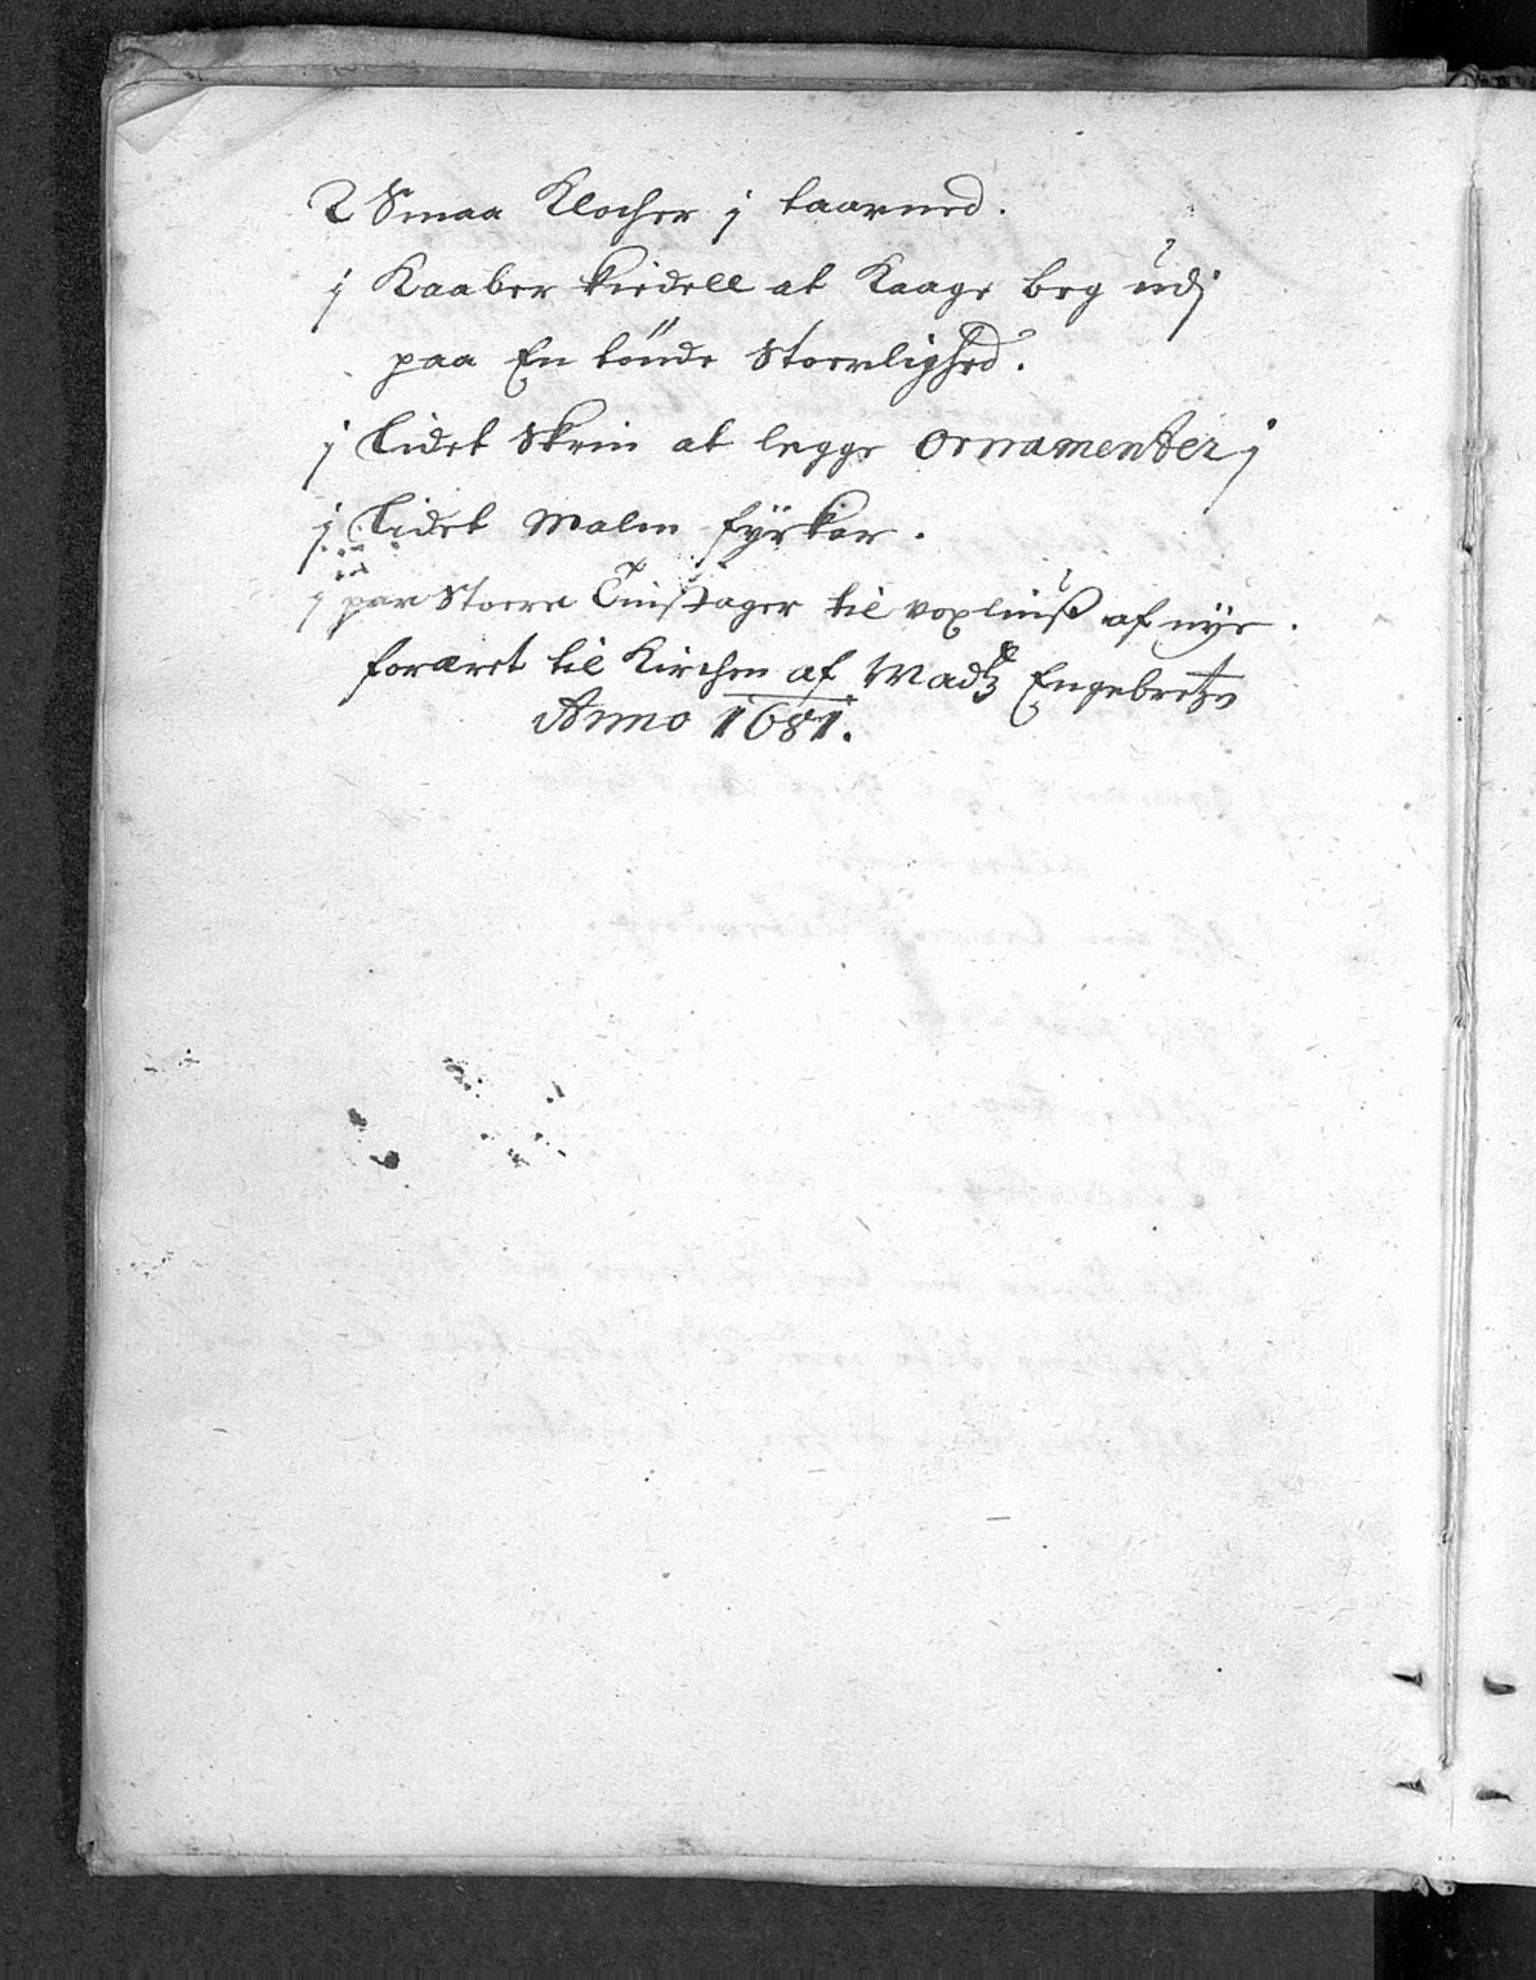 2 Smaa Klocher j taarned.
j Kaaber kiedell at Kaage beg udj
paa En tönde Storrlighed.
j lidet Skrin at legge Ornamenter j
j lidet Malm fyrkar.
j par Storre Tinstager til voxliuß af nye.
foræret til Kirchen af Madtz Engebretzs
Anno 1681.